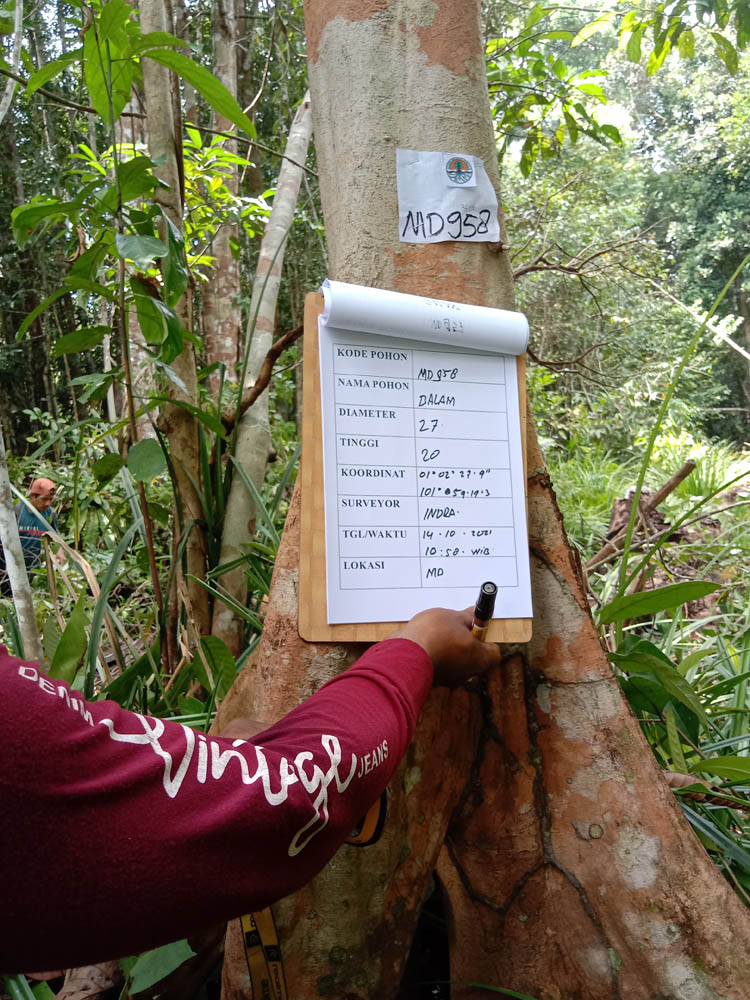 MD958
KODE POHON MD958
NAMA POHON BALAM
DIAMETER 27
TINGGI 20
KOORDINAT 01° 02' 27.9"
101° 059.19.3
SURVEYOR INDRA
TGL/WAKTU 14.10.2021
10:58 WIB
LOKASI MD
DENIM Vintage JEANS